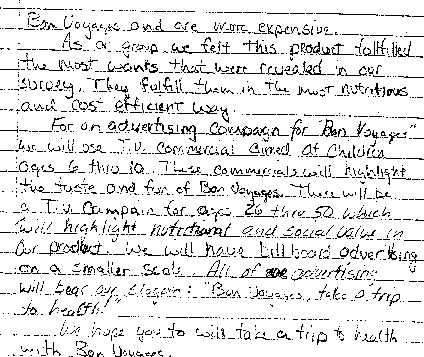 Bon Voyages and are more expensive.
As a group we felt this product fullfilled
the most wants that were revealed in our
survey. They fulfill them in the most nutritious
and cost efficient way.
For an advertising campain for "Bon Voyages"
we will use T.V. commercial aimed at children
ages 6 thru 10. These commercials will highlight
the taste and fun of Bon Voyages. There will be
a T.V. Campain for ages 26 thru 50 which
will highlight nutritional and social value in
our product. We will have billboard advertising
on a smaller scale. All of advertising
will bear our slogan: "Bon Voyages, take a trip
to health!"
We hope you to will take a trip to health
with Bon Voyages.